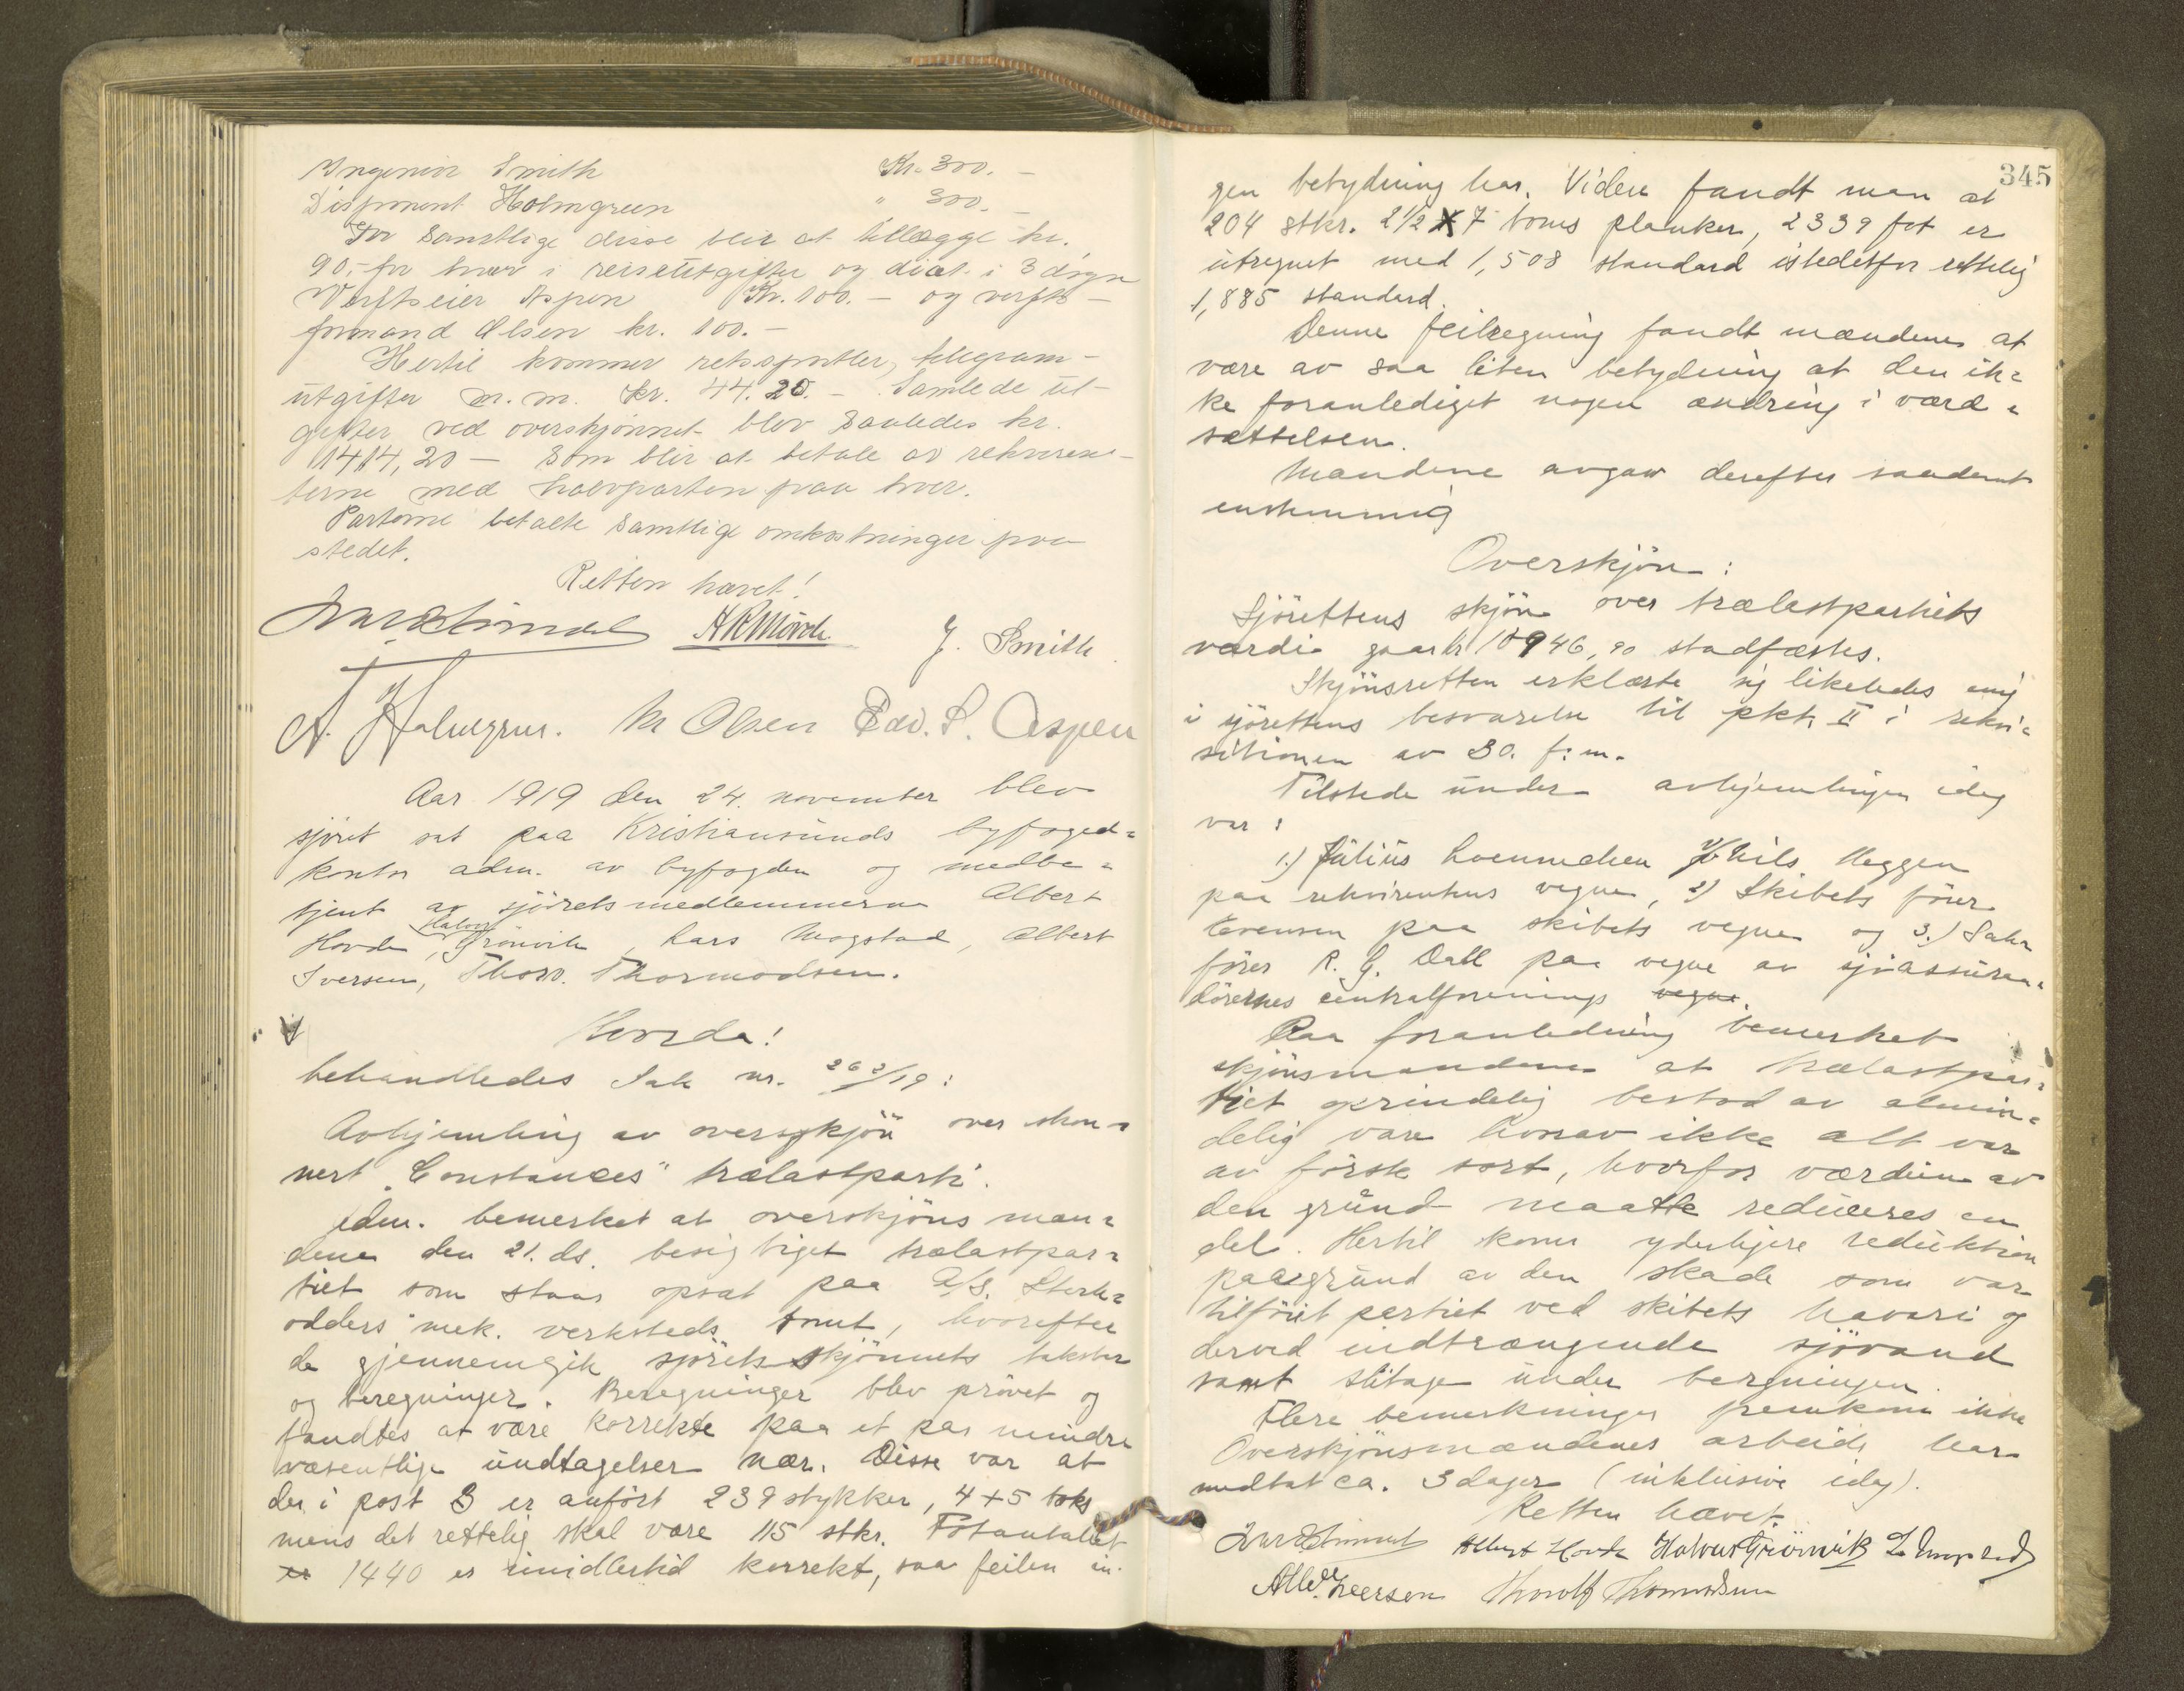 Ingeniør Smith Kr. 300.-
Disponent Holmgreen " 300.-
For samtlige disse blir at tillægge kr.
90,- for hver i reiseutgifter og diæt i 3 døgn
Verftseier Aspen Kr. 100.- og verfts-
formand Olsen kr. 100.-
Hertil kommer retssportler, telegram-
utgifter m. m. kr. 44.20.- Samlede ut-
gifter ved overskjønnet blev saaledes kr.
1414,20 - som blir at betale av rekviren-
terne med halvparten paa hver.
Parterne betalte samtlige omkostninger paa
stedet.
Retten hævet!
J. Smith
A. Holmgren. M Olsen Edv. S. Aspen
Aar 1919 den 24. november blev
sjöret sat paa Kristiansunds byfoged=
kontor adm. av byfogden og medbe=
tjent av sjöretsmedlemmerne Albert
Hovde, Halvor Grönvik, Lars Mogstad, Albert
Iversen, Thorv. Thormodsen.
Hvorda!
behandledes Sak nr. 262/19:
Avhjemling av overskjön over skon=
nert "Constances" trælastparti.
Adm. bemerket at overskjöns mæn=
dene den 21. ds. besigtiget trælastpar=
tiet som staar opsat paa A/S. Sterk=
odders mek. verksteds tomt, hvorefter
de gjennemgik sjöretsskjönnets takster
og beregninger. Beregninger blev prövet og
fandtes at være korrekte paa et par mindre
væsentlige undtagelser nær. Disse var at
der i post 3 er anfört 239 stykker, 4+5 toks
mens det rettelig skal være 115 stkr. Fotantallet
er 1440 er imidlertid korrekt, saa feilen in-
345
gen betydning har. Videre fandt man at
204 stkr. 2 1/2 X 7 toms planker, 2339 fot er
utregnet med 1,508 standard istedetfor rettelig
1,885 standard.
Denne feilregning fandt mændene at
være av saa liten betydning at den ik=
ke foranlediget nogen ændring i værd=
sættelsen.
Mændene avgav derefter saadant
enstemmig
Overskjön:
Sjörettens skjön over trælastpartiets
værdi gaar kr 10946,90 stadfæstes.
Skjönsretten erklærte sig likeledes enig
i sjörettens besvarelse til pkt. II i rekvi=
sitionen av 30. f. m.
Tilstede under avhjemlingen idag
var:
1.) Julius Loennechen v/ Nils Meggen
paa rekvirentens vegne, 2) Skibets förer
Evensen paa skibets vegne og 3.) Sakr
förer R. G. Dall paa vegne av sjöassuran=
dörernes centralforenings vegne.
Paa foranledning bemerket
skjönsmændene at trælastpar=
tiet oprindelig bestod av almin=
delig vare hvorav ikke alt var
av förste sort, hvorfor værdien av
den grund maatte reduceres en
del. Hertil kom yderligere reduktion
paagrund av den skade som var
tilföiet partiet ved skibets havari og
derved indtrængende sjövand
samt slitage under bergningen.
Flere bemerkninger fremkom ikke
Overskjönsmændenes arbeide har
medtat ca. 3 dager (inklusive idag).
Retten hævet.
Albert Hovde Halvor Grönvik L Mogstad
Alb. Iversen Thorolf Thormodsen